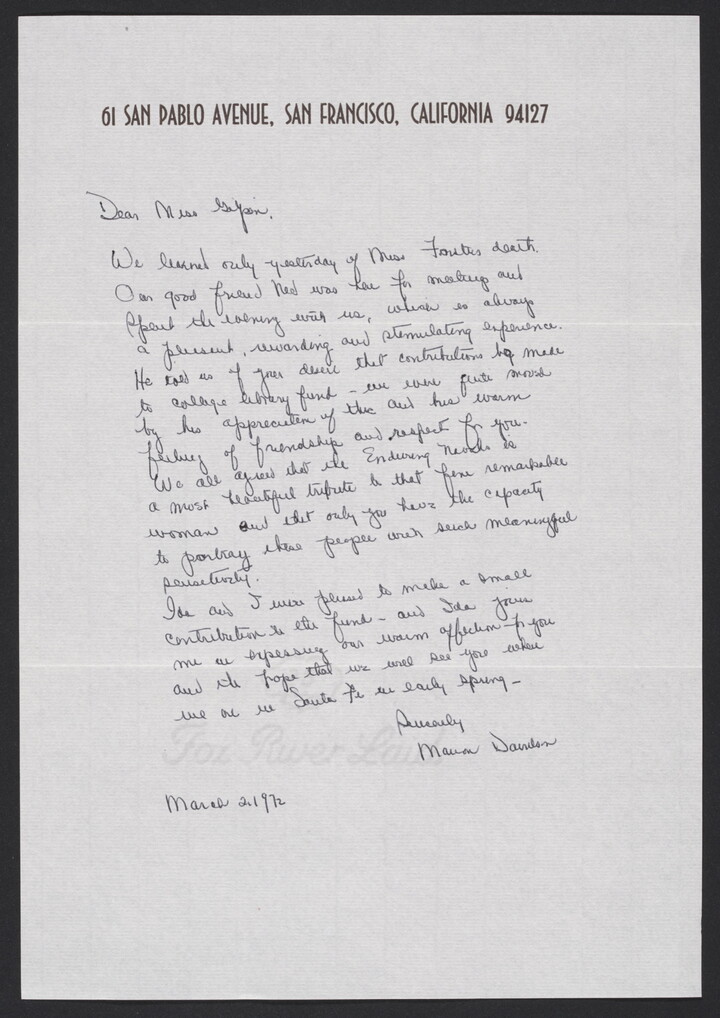 61 SAN PABLO AVENUE, SAN FRANCISCO, CALIFORNIA 94127
Dear Miss Gilpin,
We learned only yesterday of Miss Forster's death.
Our good friend Ned was here for meetings and
spent the evening with us, which is always
a pleasant, rewarding and stimulating experience.
He told us of your desire that contributions be made
to college library fund - we were quite moved
by his appreciation of this and his warm
feeling of friendship and respect for you.
We all agreed that the Enduring Navaho is
a most beautiful tribute to that fine remarkable
woman and that only you have the capacity
to portray these people with such meaningful
sensitivity.
Ida and I were pleased to make a small
contribution to the fund - and Ida joins
me in expressing our warm affection for you
and the hope that we will see you when
we are in Santa Fe in early spring -
Sincerely
Marion Davidson
Fox River Laid
March 2, 1972